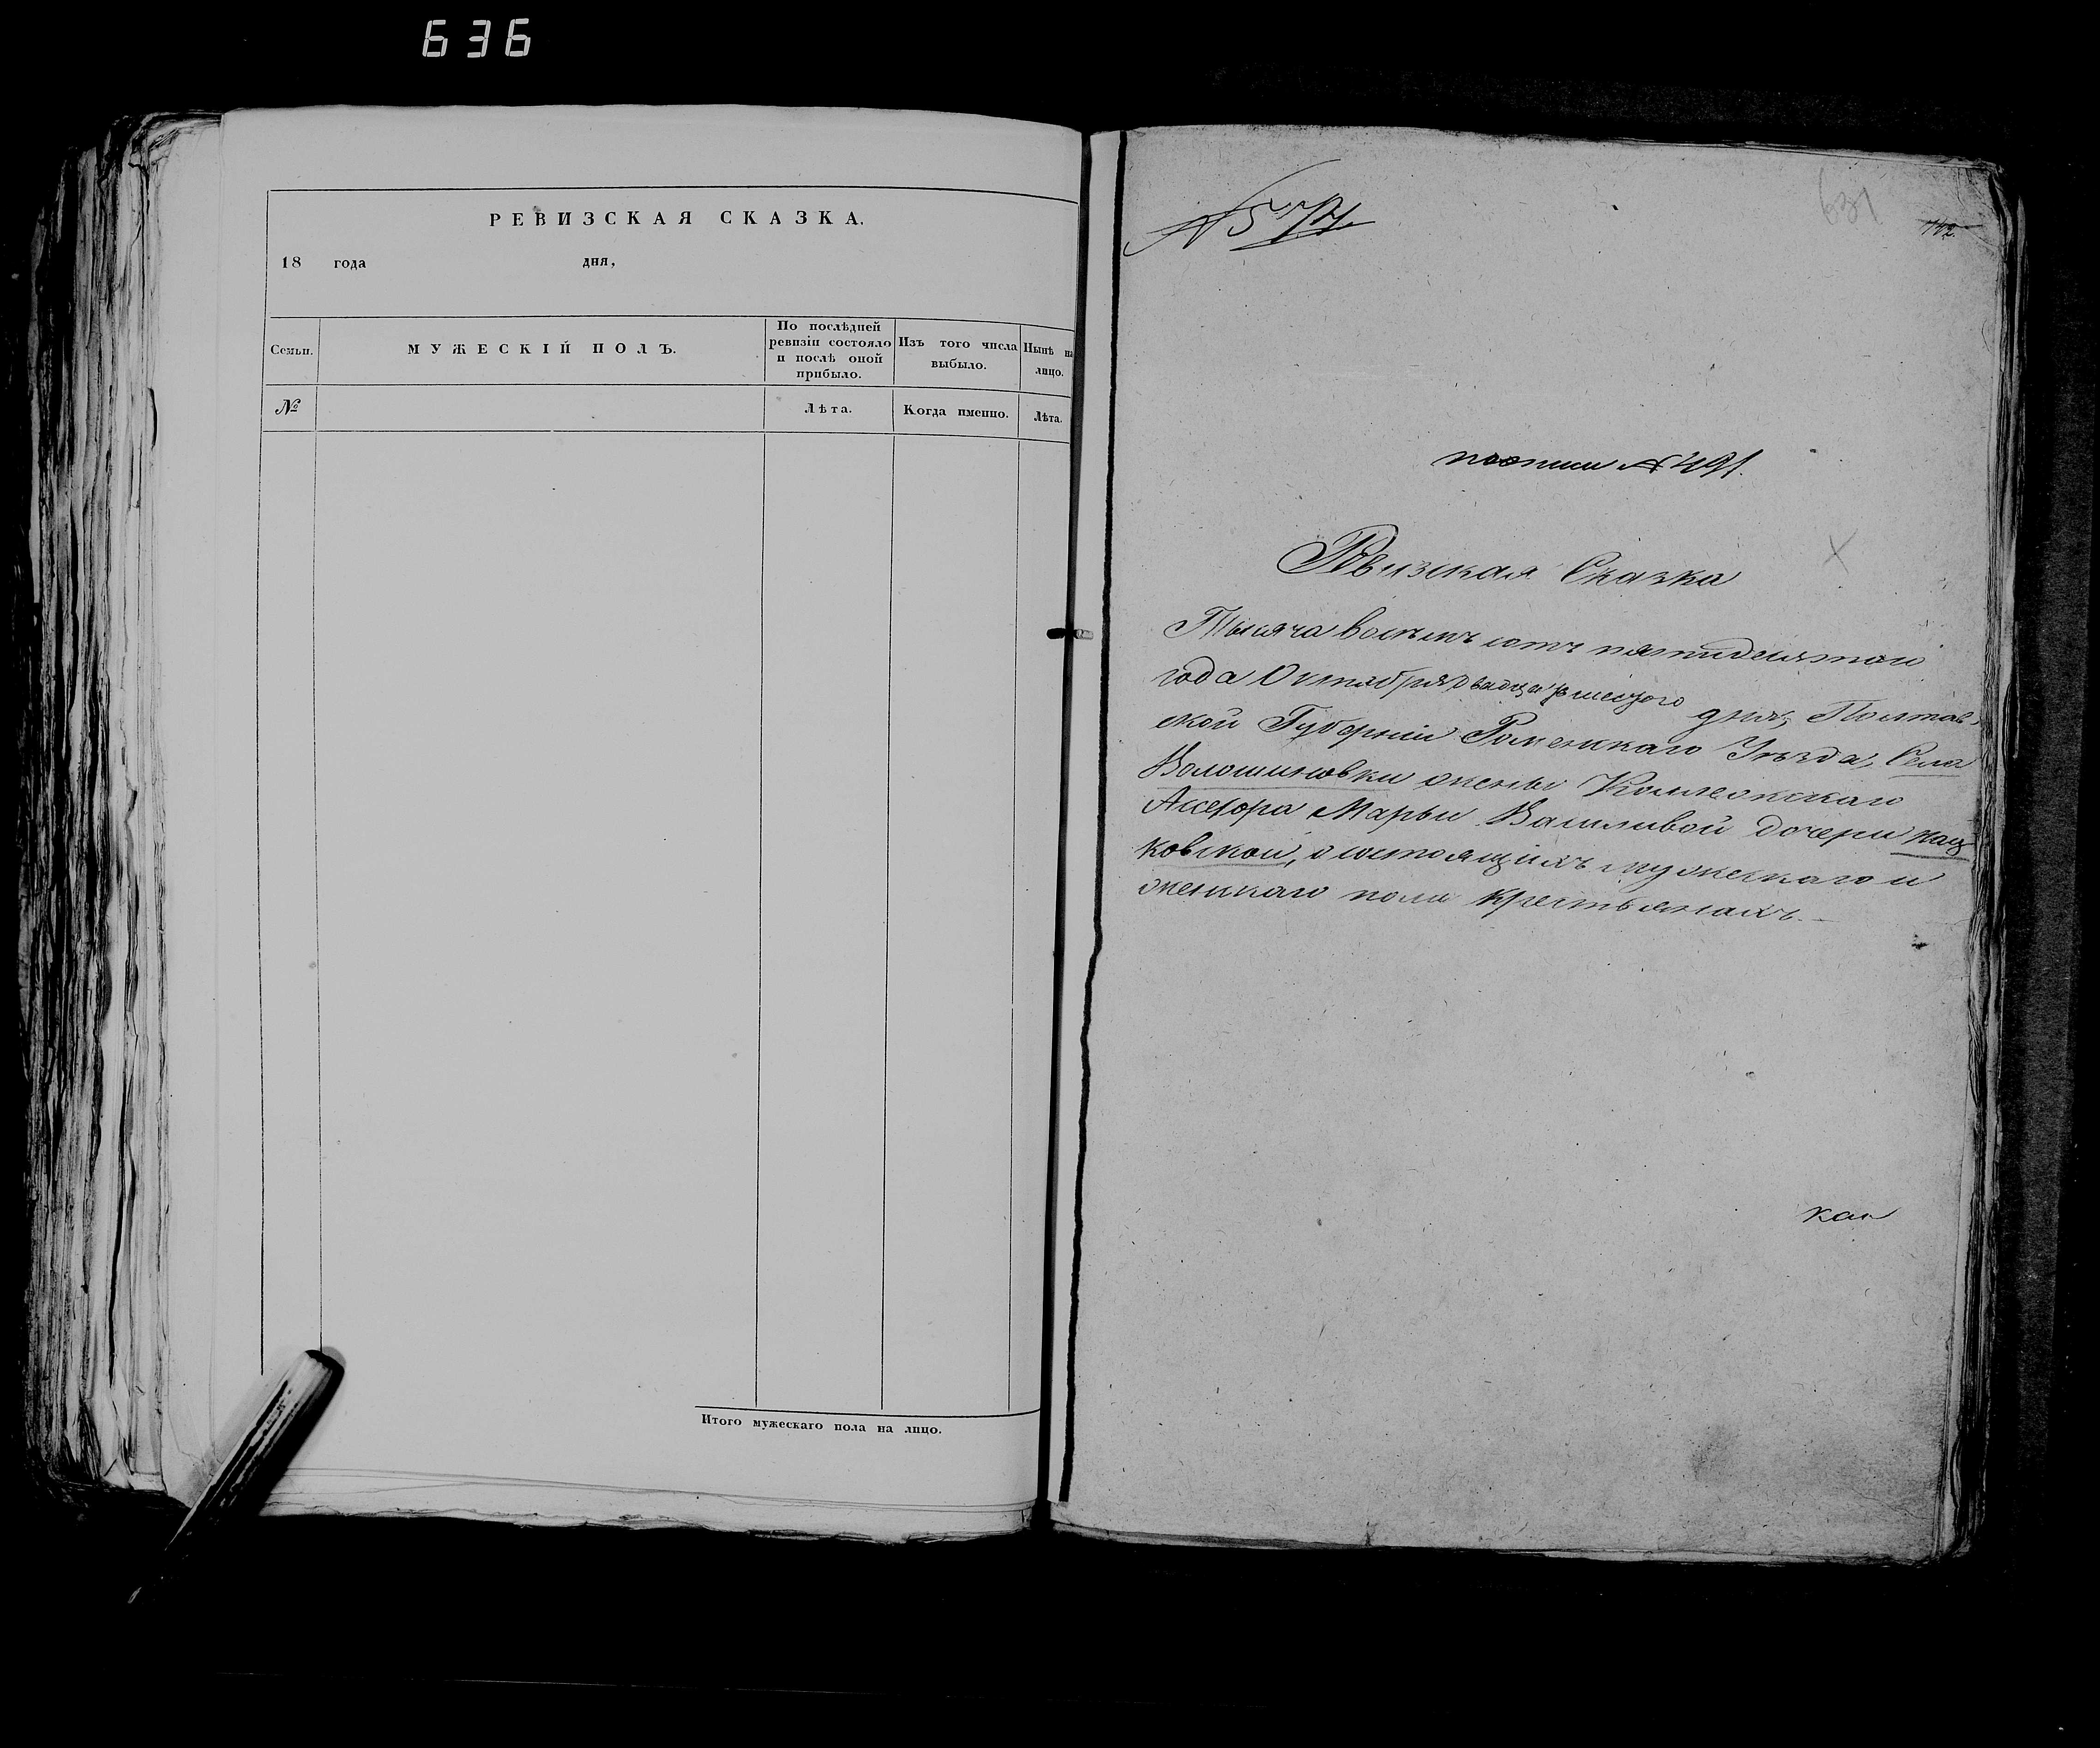 636
РЕВИЗСКАЯ СКАЗКА.
18 года дня,
Семьи.
МУЖЕСКІЙ ПОЛЪ.
По послѣдней
ревизіи состояло
и послѣ оной
прибыло.
Изъ того числа
выбыло.
Нынѣ на
лицо.
№
Лѣта.
Когда именно.
Лѣта.
Итого мужескаго пола на лицо.
631
142.
№ 491.
Ревизская Сказка
Тысяча восемъ сотъ пятидесятого
года Октября двадцать шестого дня, Полтав-
ской Губерніи Роменскаго Уѣзда, Села
Волошиновки жены Коллежскаго
Ассесора Марьи Васильевой дочери
ковской, о состоящихъ мужескаго и
женскаго пола крестьянахъ.